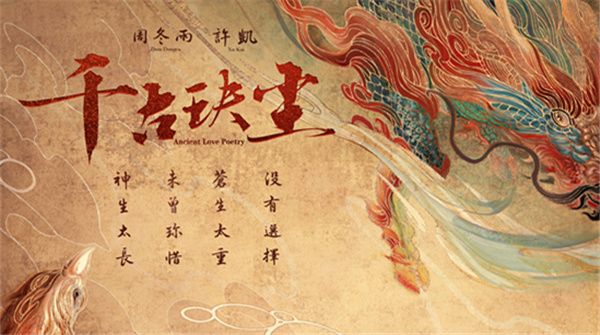 周冬雨 許凱
Zhou Dongyu Xu Kai
千古玦尘
Ancient Love Poetry
神生太長
未曾珎惜
蒼生太重
没有選擇